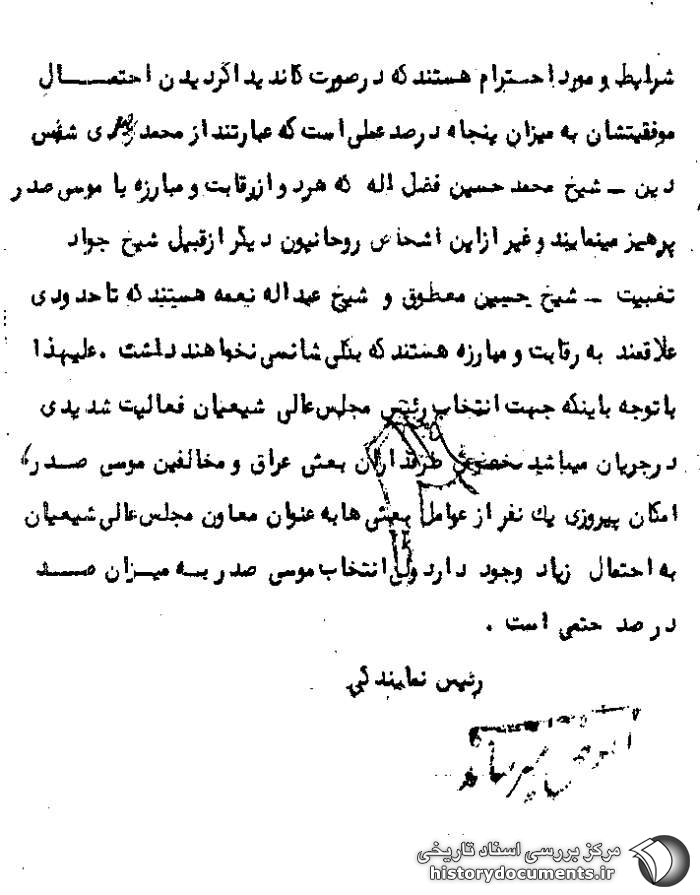 شرایط و مورد احترام هستند که در صورت کاندیدا گردیدن احتمـــال
موفقیتشان به میزان پنجاه درصد عملی است که عبارتند از محمد مهدی شمس
دین ــ شیخ محمد حسین فضل اله که هر دو از رقابت و مبارزه با موسی صدر
پرهیز مینمایند و غیر از این اشخاص روحانیون دیگر از قبیل شیخ جواد
تغبیت ــ شیخ حسین معطوق و شیخ عبداله نعمه هستند که تا حدودی
علاقمند به رقابت و مبارزه هستند که بکلی شانسی نخواهند داشت . علیهذا
با توجه باینکه جهت انتخاب رئیس مجلس عالی شیعیان فعالیت شدیدی
در جریان میباشد طرفداران بعثی عراق و مخالفین موسی صــدر
امکان پیروزی یک نفر از عوامل بعثی ها به عنوان معاون مجلس عالی شیعیان
به احتمال زیاد وجود دارد ولی انتخاب موسی صدر بــه میــزان صــــد
در صد حتمی است .
رئیس نمایندگی
مرکز بررسی اسناد تاریخی
historydocuments.ir